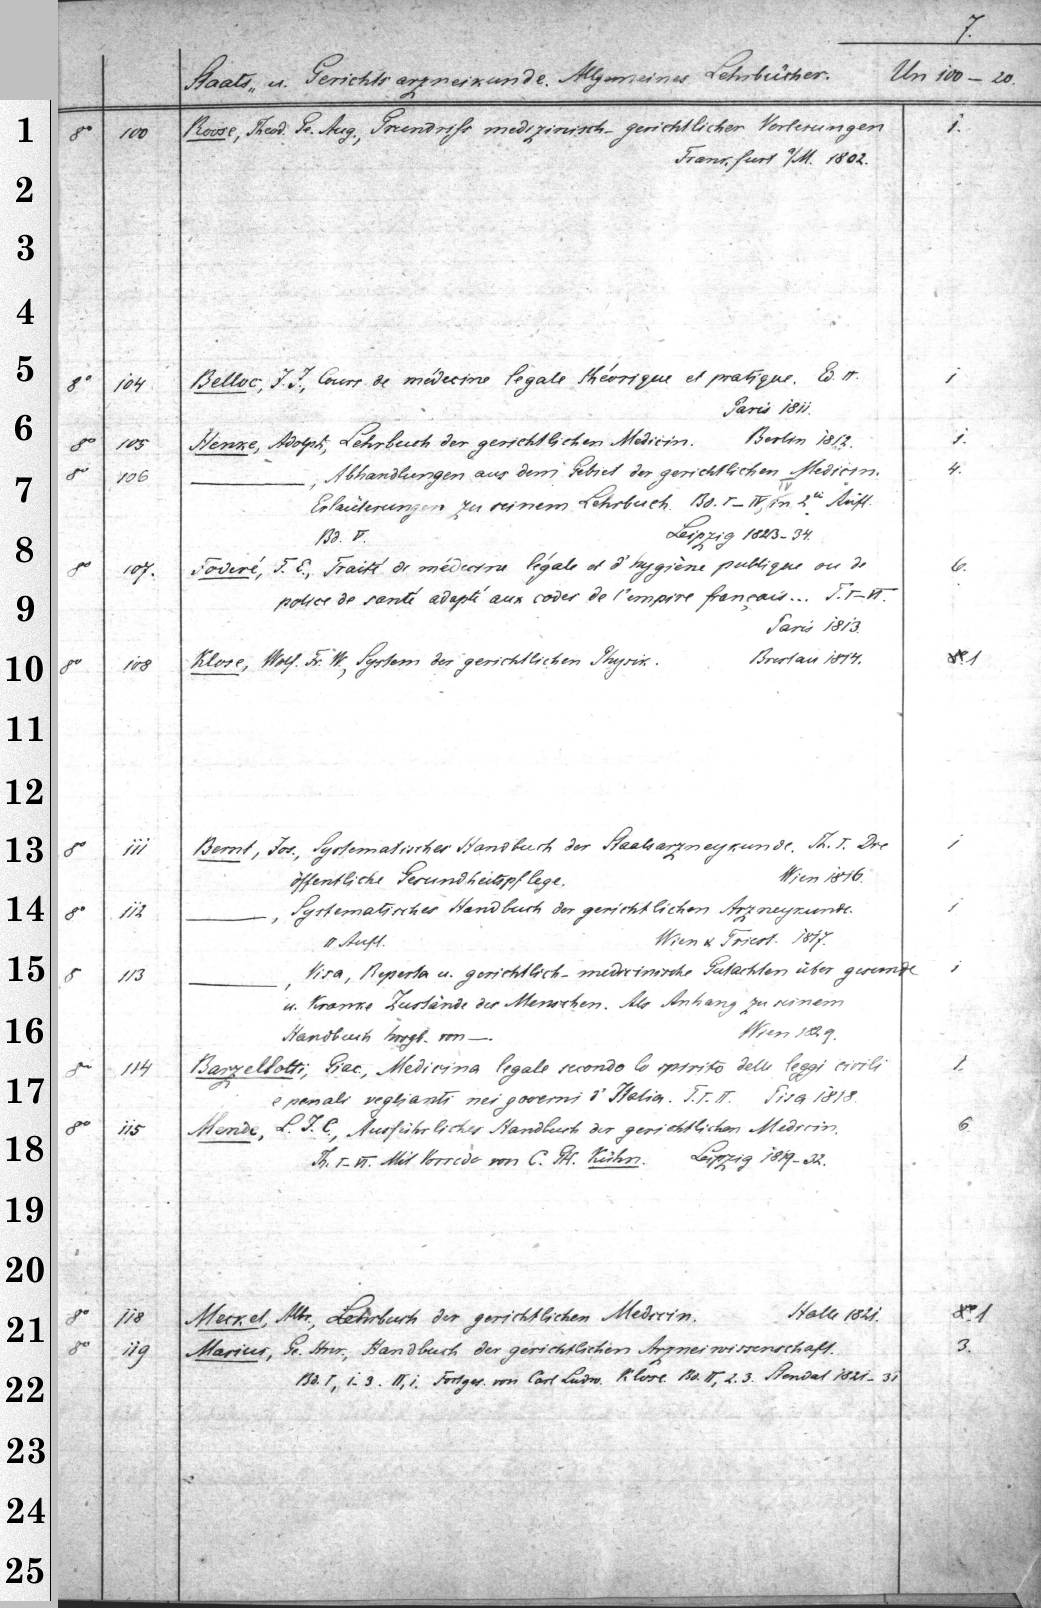 7.
Staats- u. Gerichtsarzneikunde. Allgemeines Lehrbücher. Un 100 – 20.
1 8° 100 Roose, Theod. Ge. Aug., Grundriss medizinisch-gerichtlicher Vorlesungen 1.
Frankfurt a/M. 1802.
2
3
4
5 8° 104 Belloc, J. J., Cours de médecine légale théorique et pratique. Ed. II. 1
Paris 1811.
6 8° 105 Henke, Adolph, Lehrbuch der gerichtlichen Medicin. Berlin 1812. 1.
7 8° 106 ———, Abhandlungen aus dem Gebiet der gerichtlichen Medicin. 4.
Erläuterungen zu seinem Lehrbuch. Bd. I–IV, in 2ter Aufl.
8 Bd. V. Leipzig 1823–34.
8° 107. Foderé, F. E., Traité de médecine légale et d'hygiène publique ou de 6.
9 police de santé adapté aux codes de l'empire français... T. I–VI.
Paris 1813.
10 8° 108 Klose, Wolf. Fr. W., System der gerichtlichen Physik. Breslau 1814. 1
11
12
13 8° 111 Bernt, Jos., Systematisches Handbuch der Staatsarzneykunde. Th. I. Die 1
öffentliche Gesundheitspflege. Wien 1816.
14 8° 112 ———, Systematisches Handbuch der gerichtlichen Arzneykunde. 1
II Aufl. Wien & Triest. 1817.
15 8 113 ———, Visa, Reperta u. gerichtlich-medicinische Gutachten über gesunde 1
u. kranke Zustände des Menschen. Als Anhang zu seinem
16 Handbuch hrsgb. von —. Wien 1829.
8° 114 Barzellotti, Giac., Medicina legale secondo lo spirito delle leggi civili 1.
17 e penali veglianti nei governi d'Italia. T. I. II. Pisa 1818.
8° 115 Mende, L. J. C., Ausführliches Handbuch der gerichtlichen Medicin. 6
18 Th. I–VI. Mit Vorrede von C. Th. Kühn. Leipzig 1819–32.
19
20
21 8° 118 Meckel, Albr., Lehrbuch der gerichtlichen Medicin. Halle 1821. 1
8° 119 Masius, Ge. Hnr., Handbuch der gerichtlichen Arzneiwissenschaft. 3.
22 Bd. I, 1–3. II, 1. Fortges. von Carl Ludw. Klose. Bd. II, 2. 3. Stendal 1821–31
23
24
25